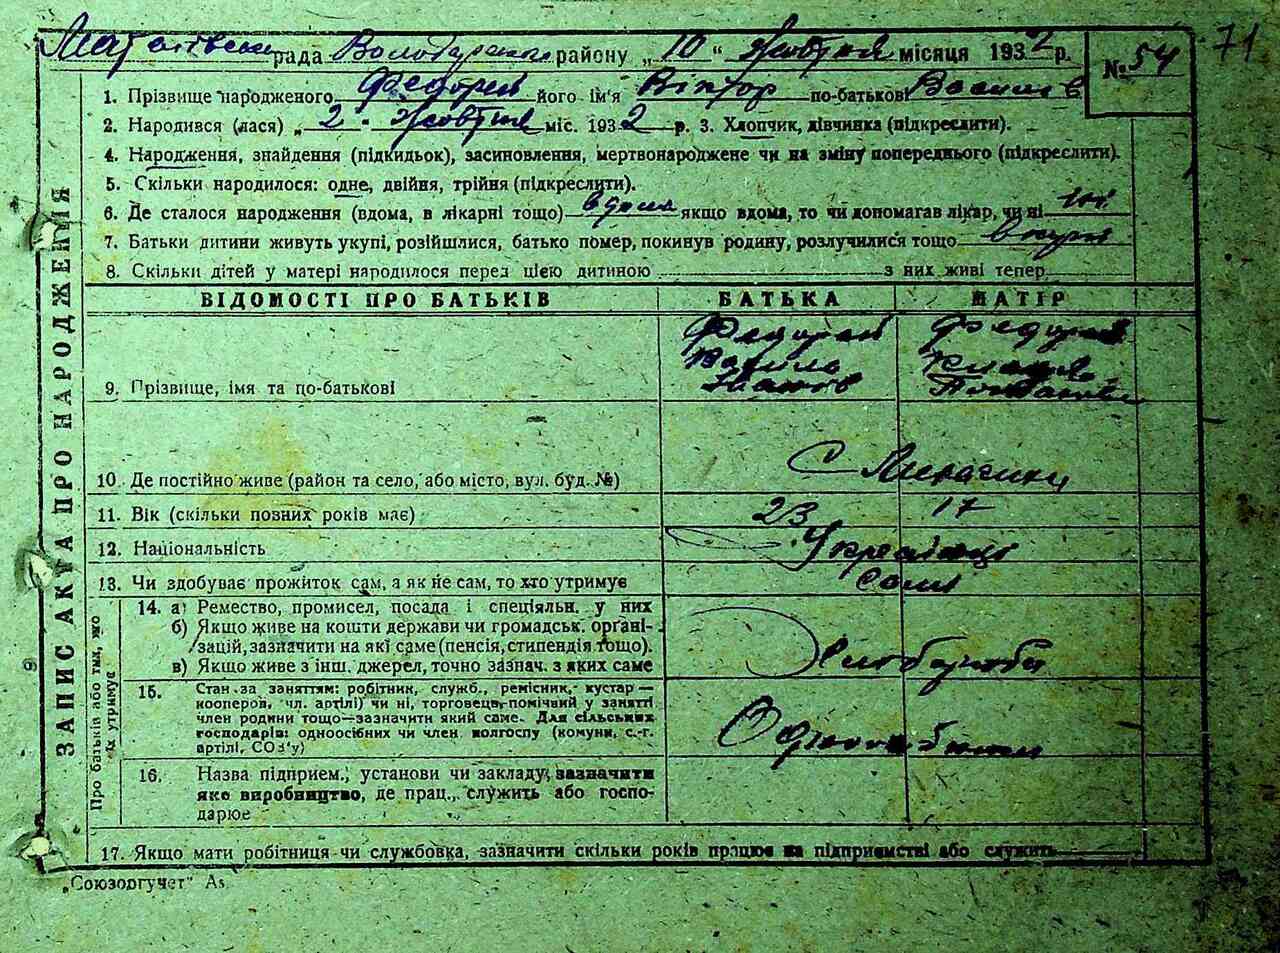 рада Володарського району „10“ Жовтня місяця 1932 р. № 54 71
1. Прізвище народженого Федорів його ім'я Віктор по-батькові Василів
2. Народився (лася) „2. Жовтня міс. 1932 р. 3. Хлопчик, дівчинка (підкреслити).
4. Народження, знайдення (підкидьок), засиновлення, мертвонароджене чи на зміну попереднього (підкреслити).
5. Скільки народилося: одне, двійня, трійня (підкреслити).
6. Де сталося народження (вдома, в лікарні тощо) вдома якщо вдома, то чи допомагав лікар, чи ні ні
7. Батьки дитини живуть укупі, розійшлися, батько помер, покинув родину, розлучилися тощо вкупі
8. Скільки дітей у матері народилося перед цією дитиною з них живі тепер
ЗАПИС АКТА ПРО НАРОДЖЕННЯ
ВІДОМОСТІ ПРО БАТЬКІВ БАТЬКА МАТІР
9. Прізвище, імя та по-батькові
Федорів Василь Іванів
Федорів
10. Де постійно живе (район та село, або місто, вул. буд. №) С
11. Вік (скільки повних років має) 23 17
12. Національність Українці
13. Чи здобуває прожиток сам, а як не сам, то хто утримує Сами
Про батьків або тих, хто їх утримує
14. а) Ремество, промисел, посада і спеціяльн. у них
б) Якщо живе на кошти держави чи громадськ. органі-
зацій, зазначити на які саме (пенсія, стипендія тощо).
в) Якщо живе з інш. джерел, точно зазнач. з яких саме
Хлібороби
15. Стан за заняттям: робітник, служб., ремісник, кустар —
кооперов. чл. артілі) чи ні, торговець, помічний у занятті
член родини тощо—зазначити який саме. Для сільських
господарів: одноосібних чи член колгоспу (комуни, с.-г.
артілі, СОЗ'у)
16. Назва підприєм., установи чи закладу, зазначити
яке виробництво, де прац., служить або госпо-
дарює
17. Якщо мати робітниця чи службовка, зазначити скільки років працює на підприємстві або служить
„Союзоргучет“ Аѕ